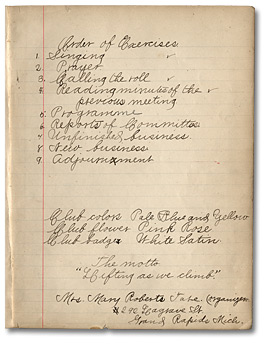 Order of Exercises
1. Singing
2. Prayer
3. Calling the roll
4. Reading minutes of the
previous meeting
5. Programme
6. Reports of Committee
7. Unfinished business.
8. New business.
9. Adjournment
Club colors Pale Blue and Yellow
Club flower Pink Rose
Club badge White Satin
The motto
"Lifting as we climb."
Mrs. Mary Roberts Tate (organizer
240 St
Grand Rapids Mich.